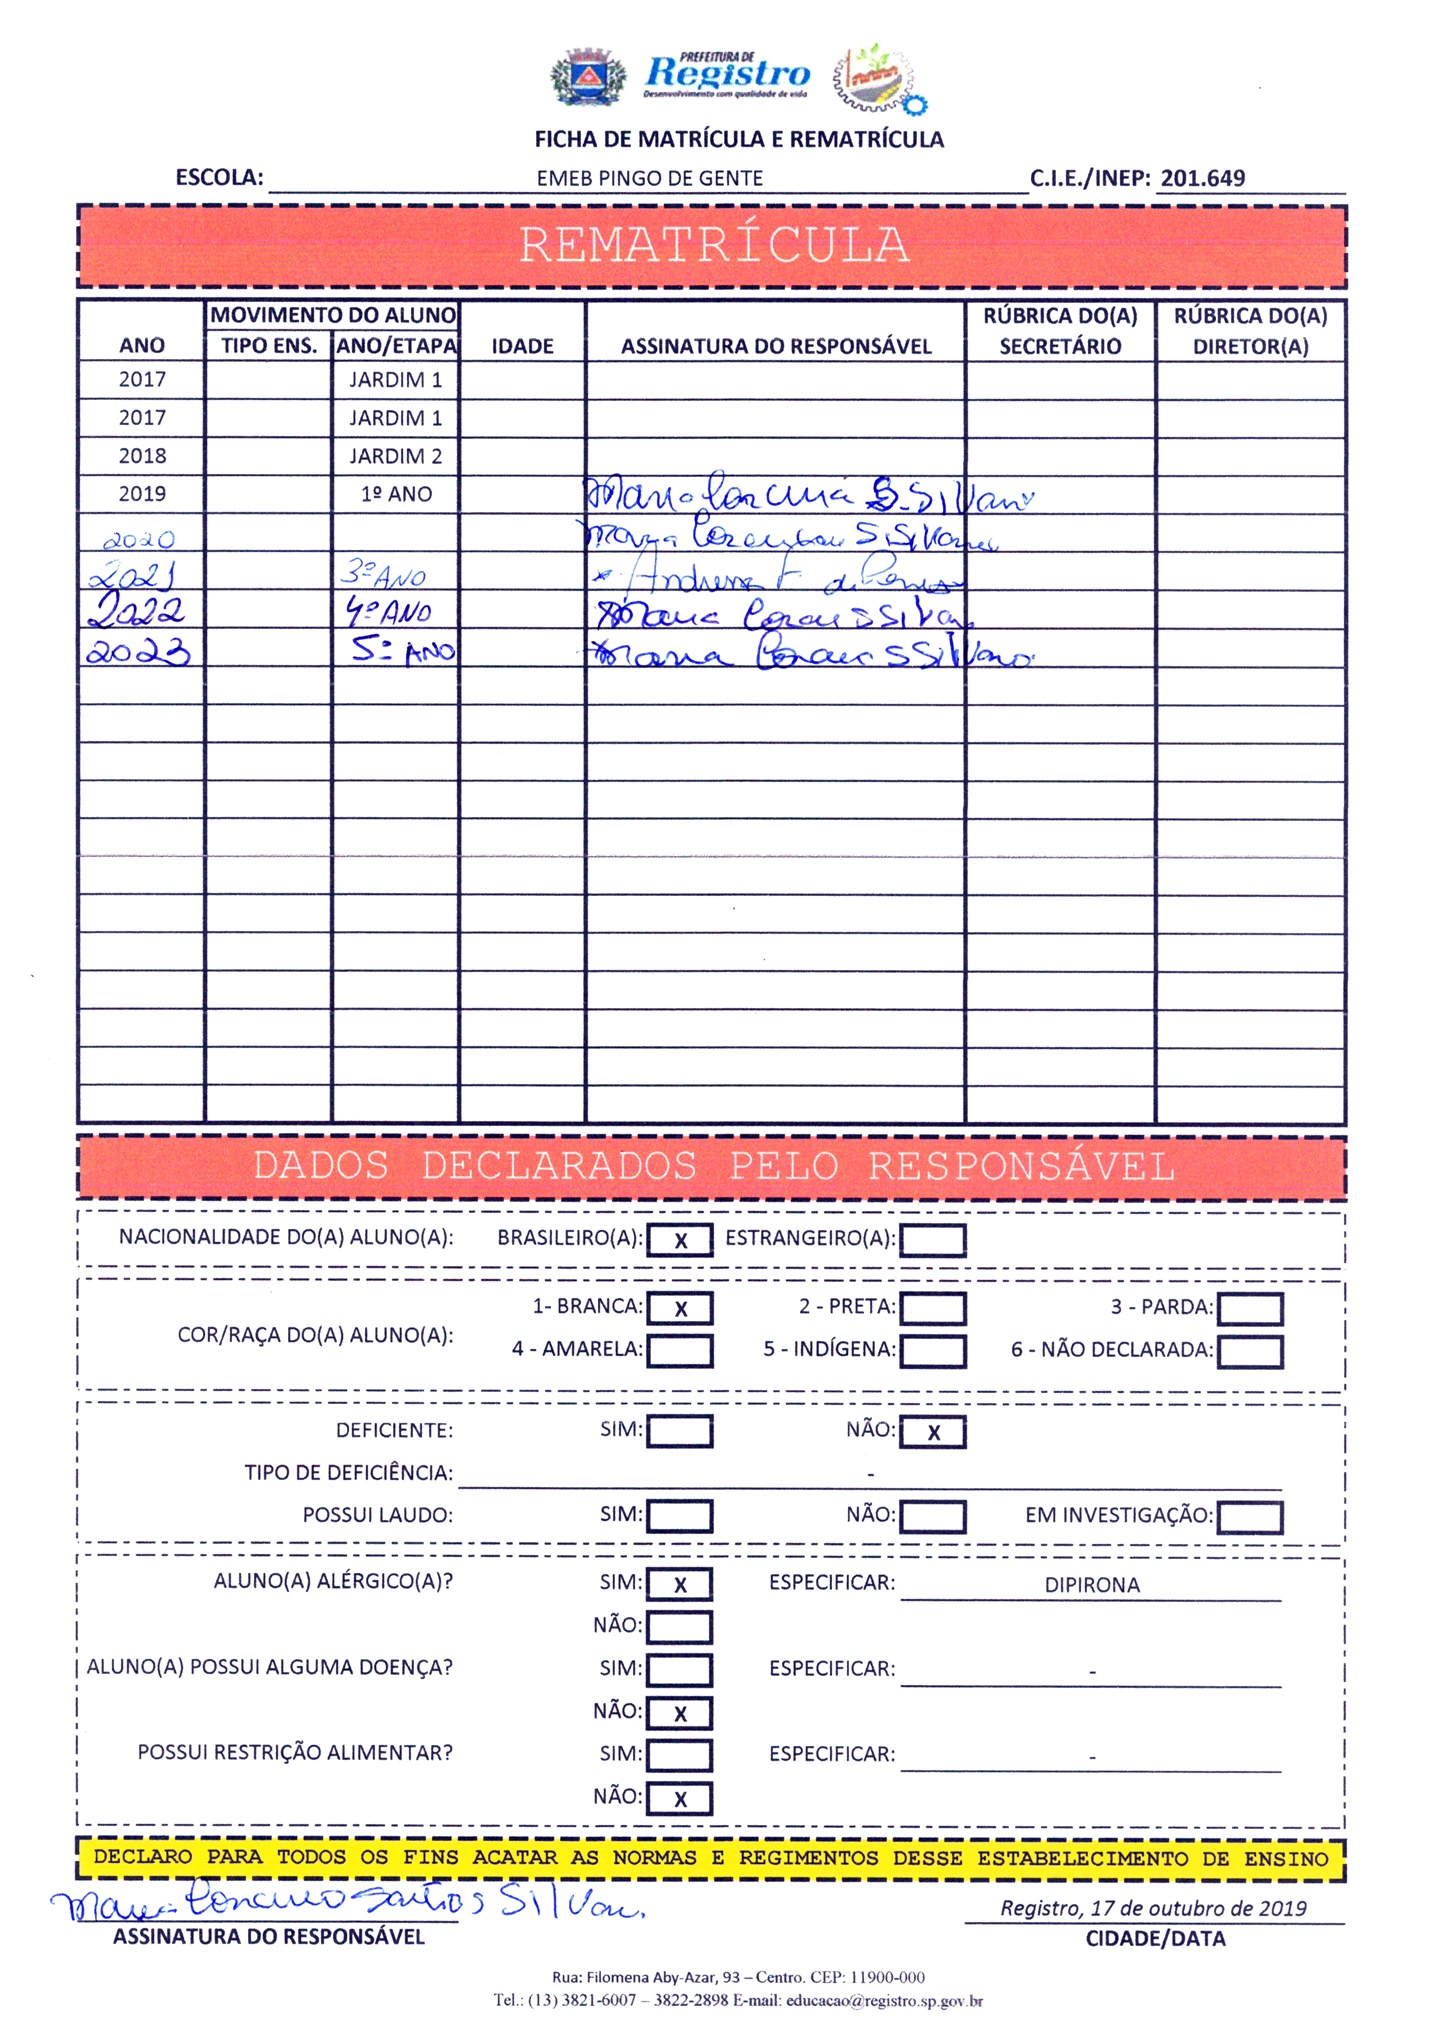 PREFEITURA DE
Registro
Desenvolvimento com qualidade de vida
FICHA DE MATRÍCULA E REMATRÍCULA
ESCOLA: EMEB PINGO DE GENTE C.I.E./INEP: 201.649
REMATRÍCULA
MOVIMENTO DO ALUNO RÚBRICA DO(A) RÚBRICA DO(A)
ANO TIPO ENS. ANO/ETAPA IDADE ASSINATURA DO RESPONSÁVEL SECRETÁRIO DIRETOR(A)
2017 JARDIM 1
2017 JARDIM 1
2018 JARDIM 2
2019 1º ANO Maria S. Silvano
2020 Maria S Silvano
2021 3º ANO Andressa F. de
2022 4º ANO Maria S Silvano
2023 5º ANO Maria S Silvano
DADOS DECLARADOS PELO RESPONSÁVEL
NACIONALIDADE DO(A) ALUNO(A): BRASILEIRO(A): X ESTRANGEIRO(A):
1- BRANCA: X 2 - PRETA: 3 - PARDA:
COR/RAÇA DO(A) ALUNO(A):
4 - AMARELA: 5 - INDÍGENA: 6 - NÃO DECLARADA:
DEFICIENTE: SIM: NÃO: X
TIPO DE DEFICIÊNCIA: -
POSSUI LAUDO: SIM: NÃO: EM INVESTIGAÇÃO:
ALUNO(A) ALÉRGICO(A)? SIM: X ESPECIFICAR: DIPIRONA
NÃO:
ALUNO(A) POSSUI ALGUMA DOENÇA? SIM: ESPECIFICAR: -
NÃO: X
POSSUI RESTRIÇÃO ALIMENTAR? SIM: ESPECIFICAR: -
NÃO: X
DECLARO PARA TODOS OS FINS ACATAR AS NORMAS E REGIMENTOS DESSE ESTABELECIMENTO DE ENSINO
Maria Santos Silvano Registro, 17 de outubro de 2019
ASSINATURA DO RESPONSÁVEL CIDADE/DATA
Rua: Filomena Aby-Azar, 93 – Centro. CEP: 11900-000
Tel.: (13) 3821-6007 – 3822-2898 E-mail: educacao@registro.sp.gov.br